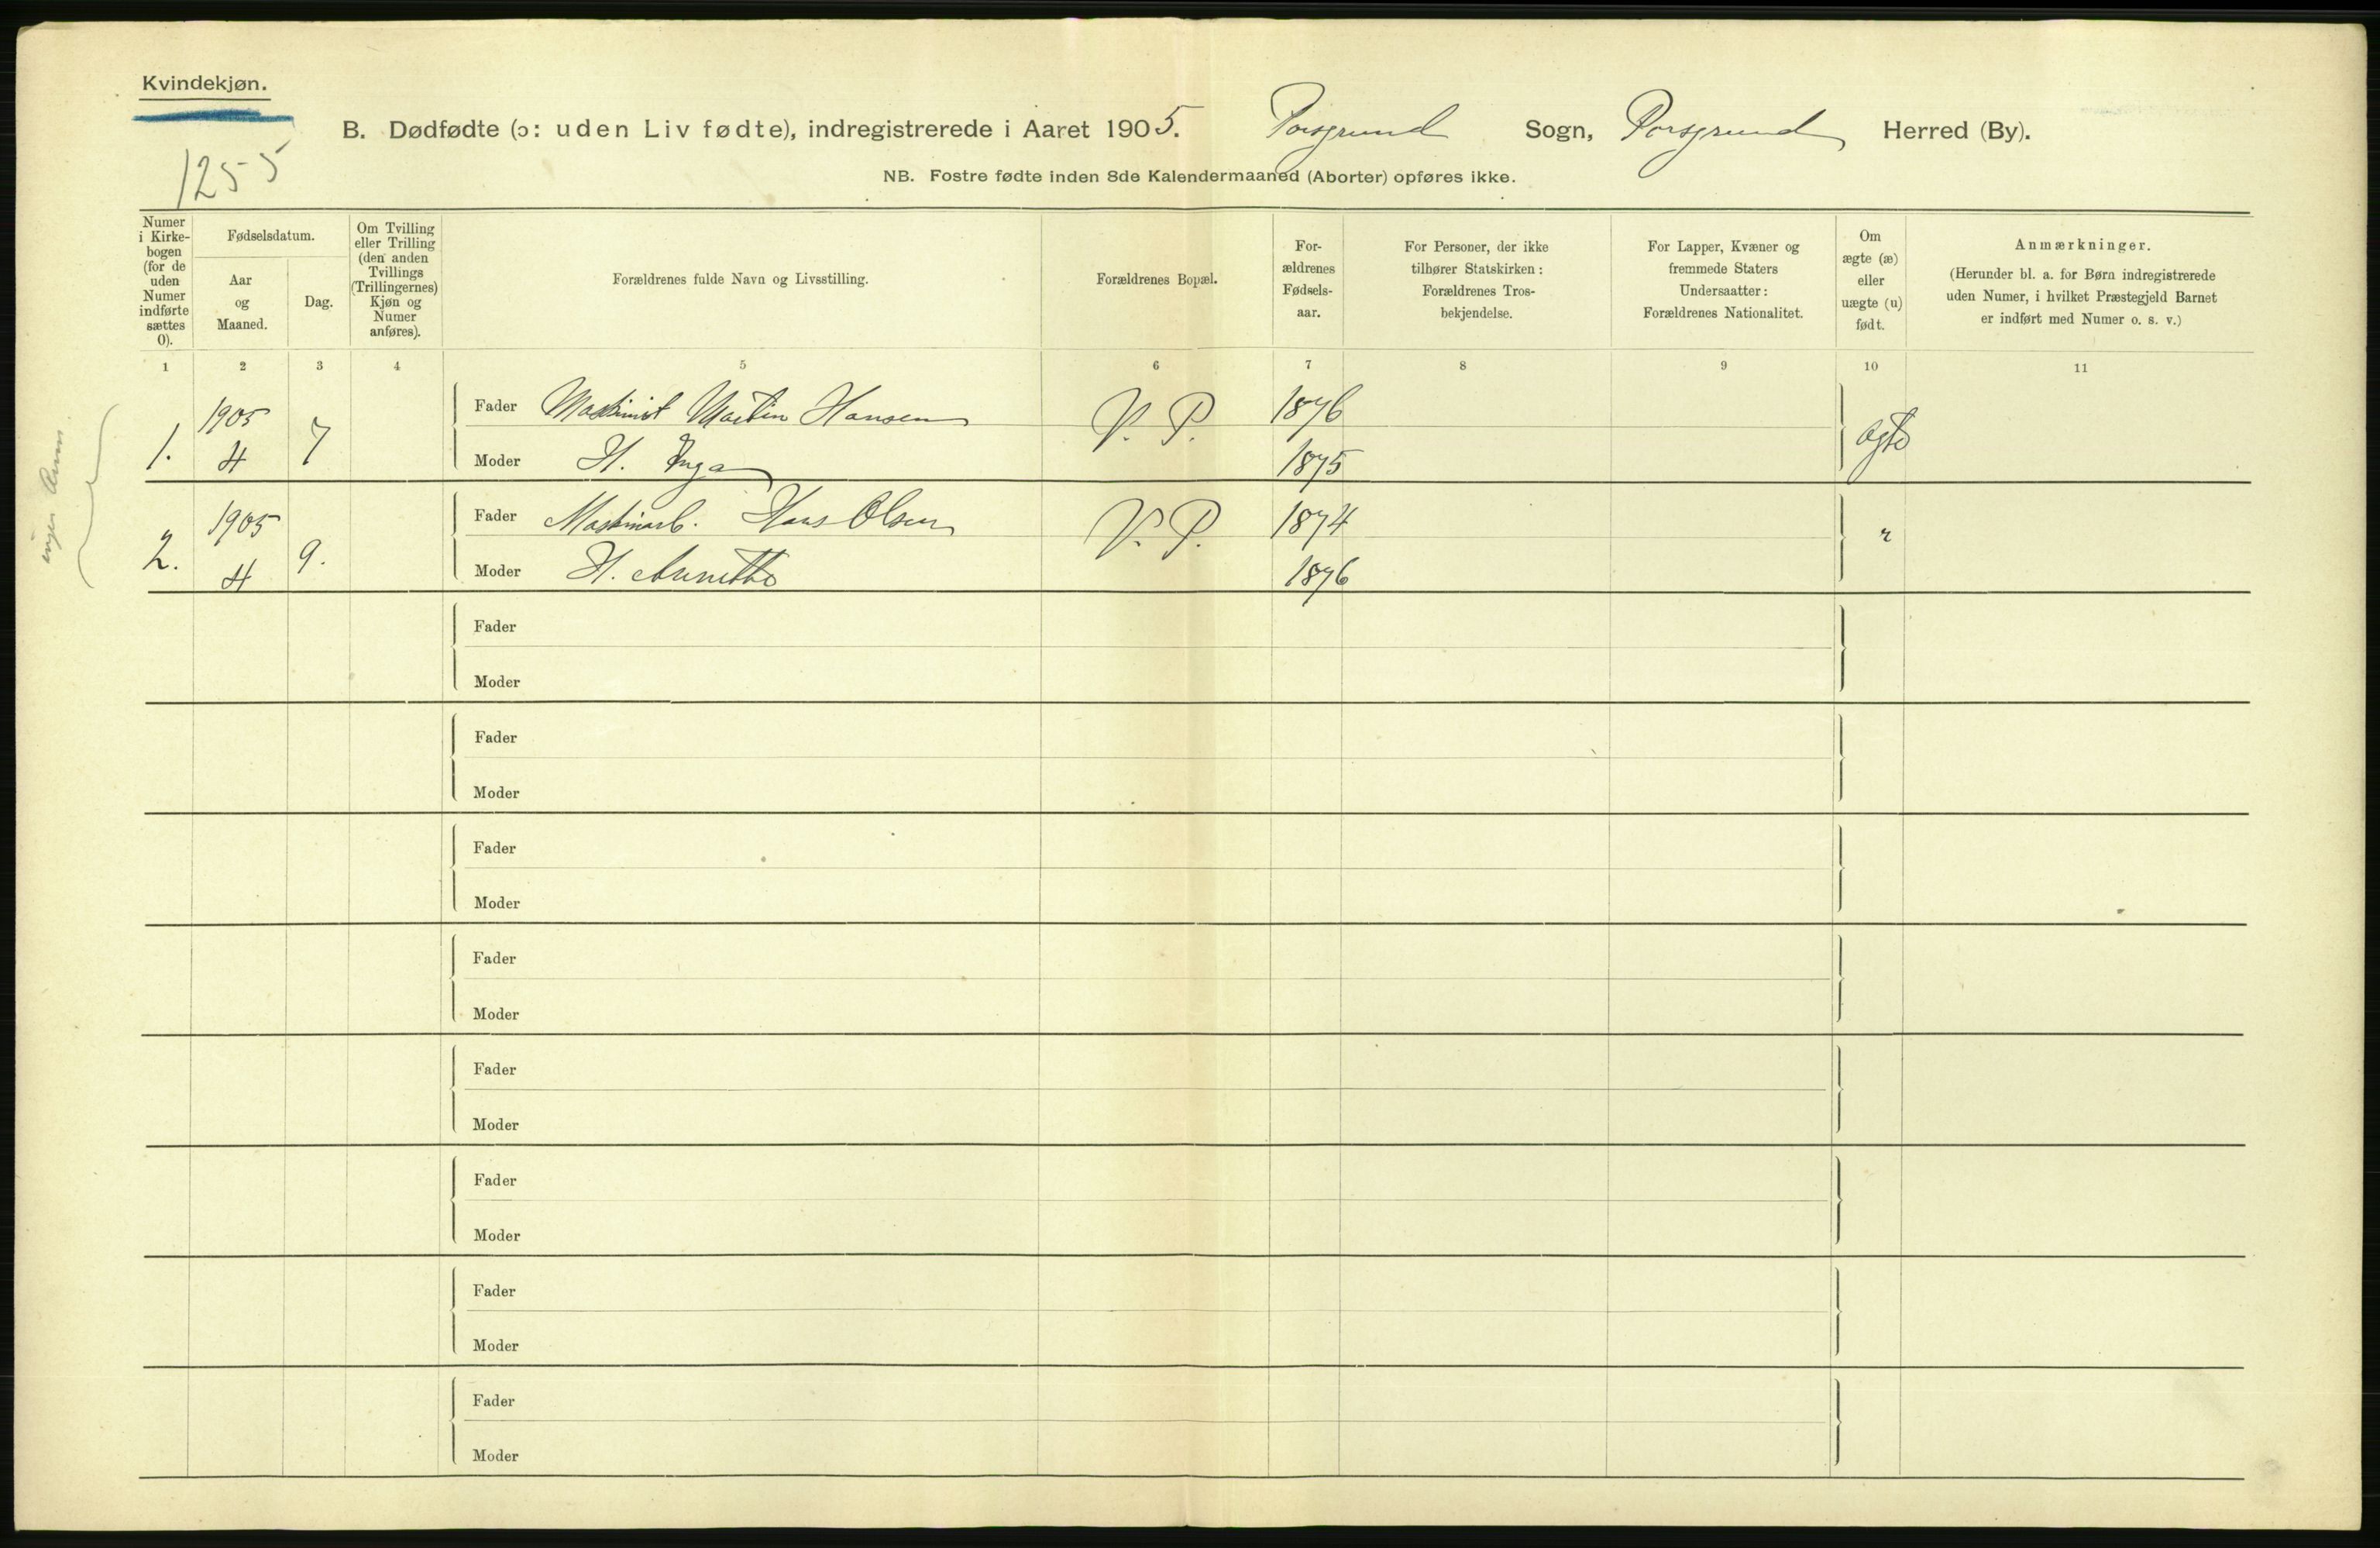 Kvindekjøn.
1255
B. Dødfødte (ɔ: uden Liv fødte), indregistrerede i Aaret 1905. Porsgrund Sogn, Porsgrund Herred (By).
NB. Fostre fødte inden 8de Kalendermaaned (Aborter) opføres ikke.
Numer
i Kirke-
bogen
(for de
uden
Numer
indførte
sættes
0).
Fødselsdatum.
Aar
og
Maaned.
Dag.
Om Tvilling
eller Trilling
(den anden
Tvillings
(Trillingernes)
Kjøn og
Numer
anføres).
Forældrenes fulde Navn og Livsstilling.
Forældrenes Bopæl.
For-
ældrenes
Fødsels-
aar.
For Personer, der ikke
tilhører Statskirken:
Forældrenes Tros-
bekjendelse.
For Lapper, Kvæner og
fremmede Staters
Undersaatter:
Forældrenes Nationalitet.
Om
ægte (æ)
eller
uægte (u)
født.
Anmærkninger.
(Herunder bl. a. for Børn indregistrerede
uden Numer, i hvilket Præstegjeld Barnet
er indført med Numer o. s. v.)
1 2 3 4 5 6 7 8 9 10 11
1. 1905 4 7 Fader Maskinist Martin Hansen V. P. 1876 ægte
Moder H. Inga 1875
2. 1905 4 9. Fader Maskinarb. Hans Olsen V. P. 1874 "
Moder H. Annette 1876
Fader
Moder
Fader
Moder
Fader
Moder
Fader
Moder
Fader
Moder
Fader
Moder
Fader
Moder
Fader
Moder